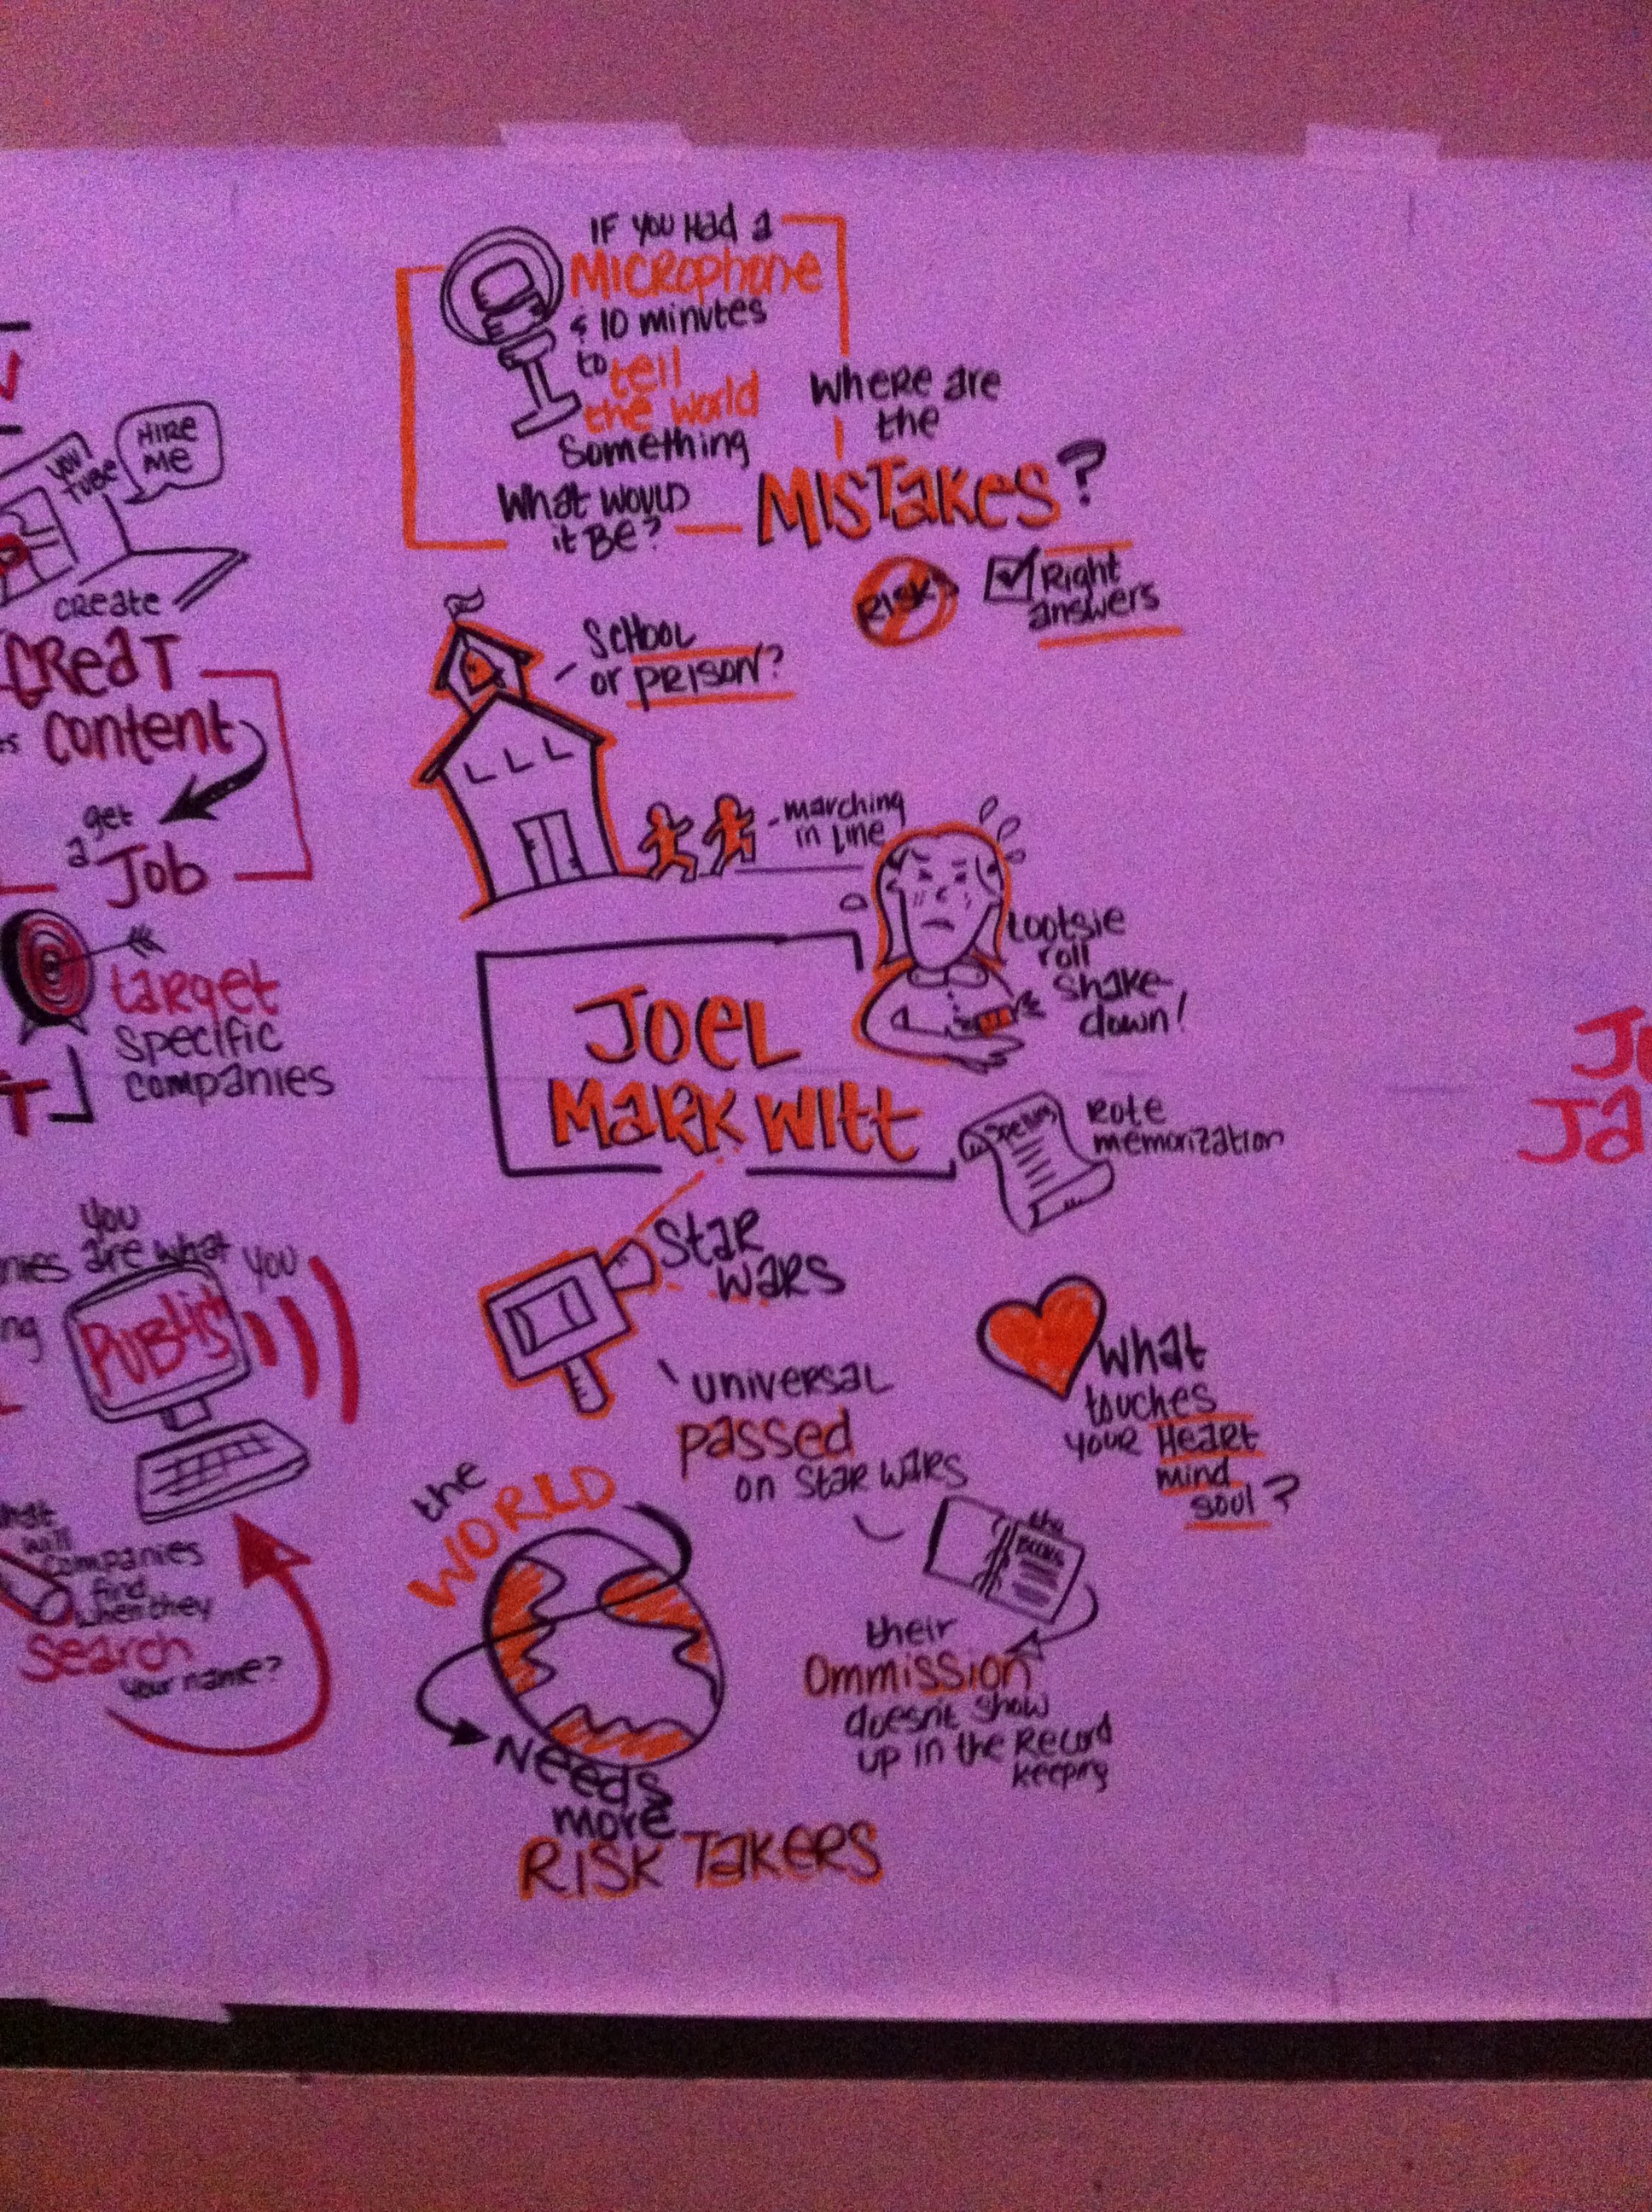 HIRE
me
YOU
TUBE
create
CReaT
content
get
a
Job
target
specific
companies
T
you
are what you
PUBLISH
will
companies
find
when they
Search
your name?
IF YOU Had a
MICRophone
& 10 minutes
to tell
the world
something
What would
it Be?
Where are
the
MISTakes?
RISK
Right
answers
SCHOOL
or PRISON?
marching
in line
tootsie
roll
shake-
down!
JOEL
MARK WITT
Spelling
Rote
memorization
STAR
WARS
UNIVERSAL
Passed
on STAR WARS
What
touches
your Heart
mind
soul?
the
Books
their
Ommission
doesn't show
up in the Record
keeping
the
WORLD
Needs
more
RISK TAKERS
Ja